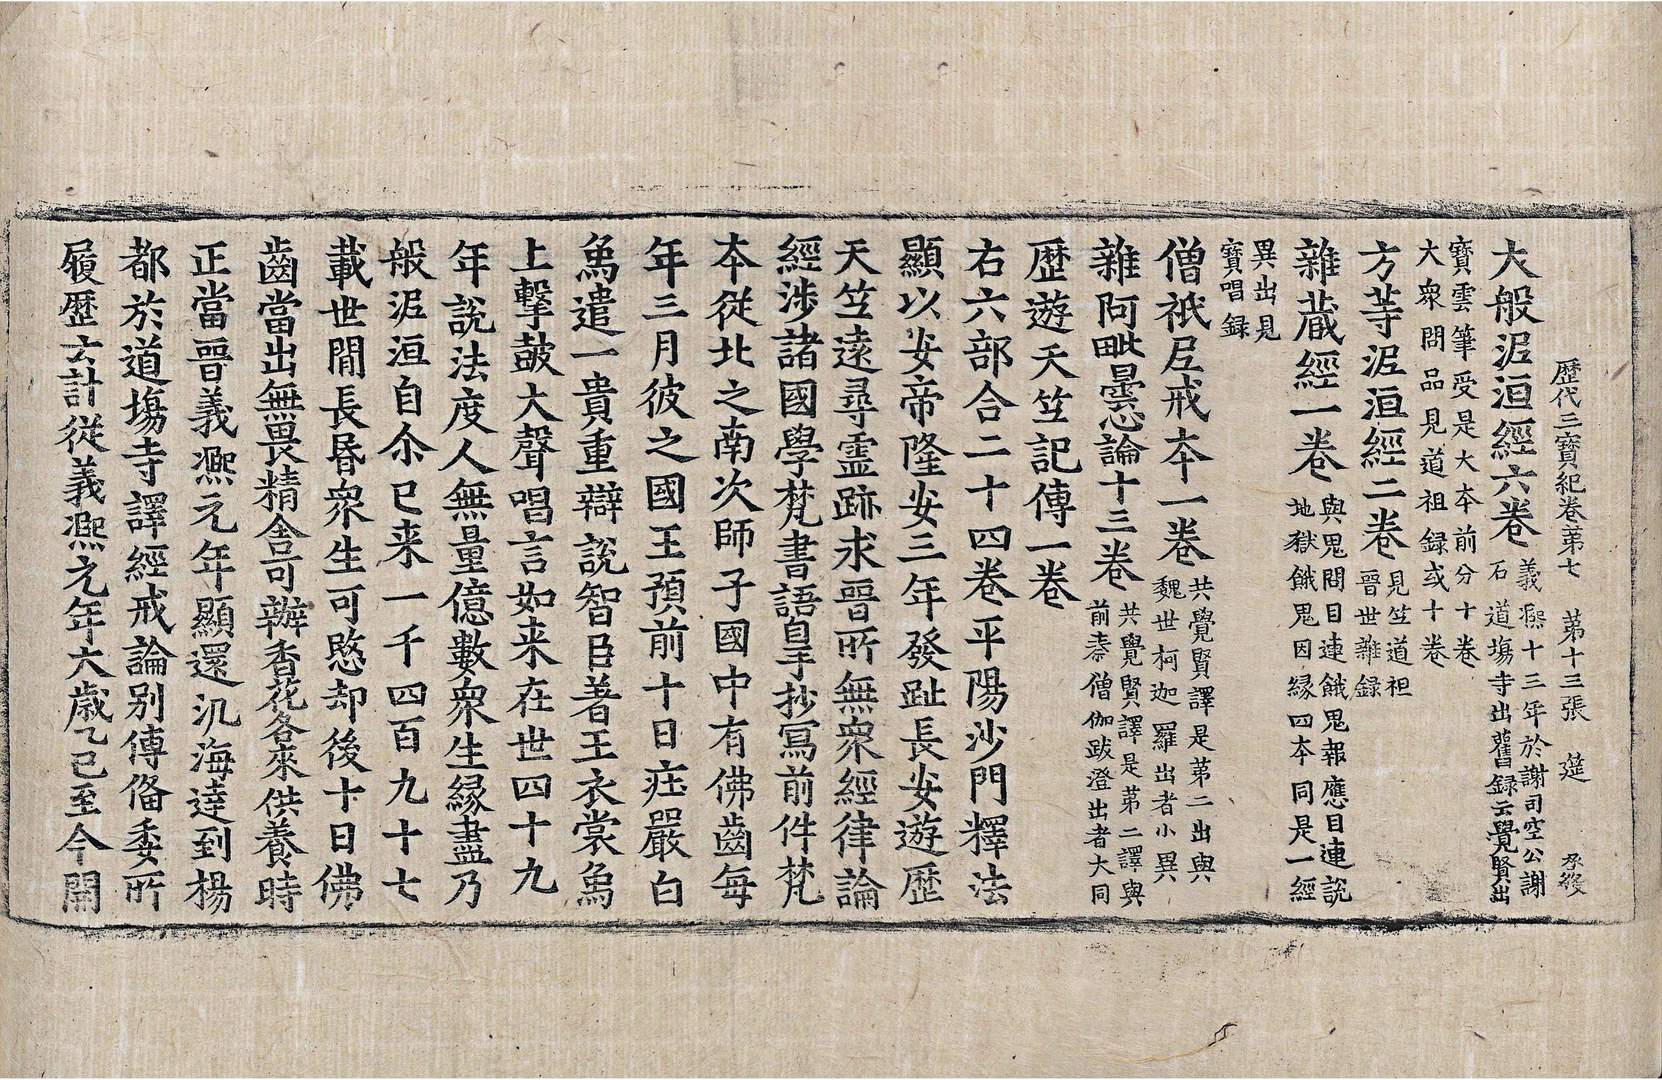 歷代三寳紀卷第七 第十三張 筵
大般泥洹經六卷 義熈十三年於謝司空公謝石道場寺出舊録云覺賢出
寳雲筆受是大夲前分十卷大衆問品見道祖録或十卷
方等泥洹經二卷 見竺道祖晉世雜録
雜蔵經一卷 與鬼問目連餓鬼報應目連說地獄餓鬼因緣四夲同是一經
異出見寳唱録
僧祇尼戒夲一卷 共覺賢譯是第二出與魏世柯迦羅出者小異
雜阿毗曇心論十三卷 共覺賢譯是第二譯與前秦僧伽跋澄出者大同
歷遊天竺記傳一卷
右六部合二十四卷平陽沙門釋法
顯以安帝隆安三年發趾長安遊歷
天竺遠尋靈跡求晉所無衆經律論
經涉諸國學梵書語自手抄寫前件梵
夲從北之南次師子國中有佛齒每
年三月彼之國王預前十日莊嚴白
象遣一貴重辯說智臣著王衣裳象
上擊鼓大聲唱言如来在世四十九
年說法度人無量億數衆生緣盡乃
般泥洹自尒已来一千四百九十七
載世間長昏衆生可愍却後十日佛
齒當出無畏精舎可辦香花各來供養時
正當晉義熈元年顯還汎海達到楊
都於道場寺譯經戒論別傳俻委所
履歷云計從義熈元年太歲乙巳至今開